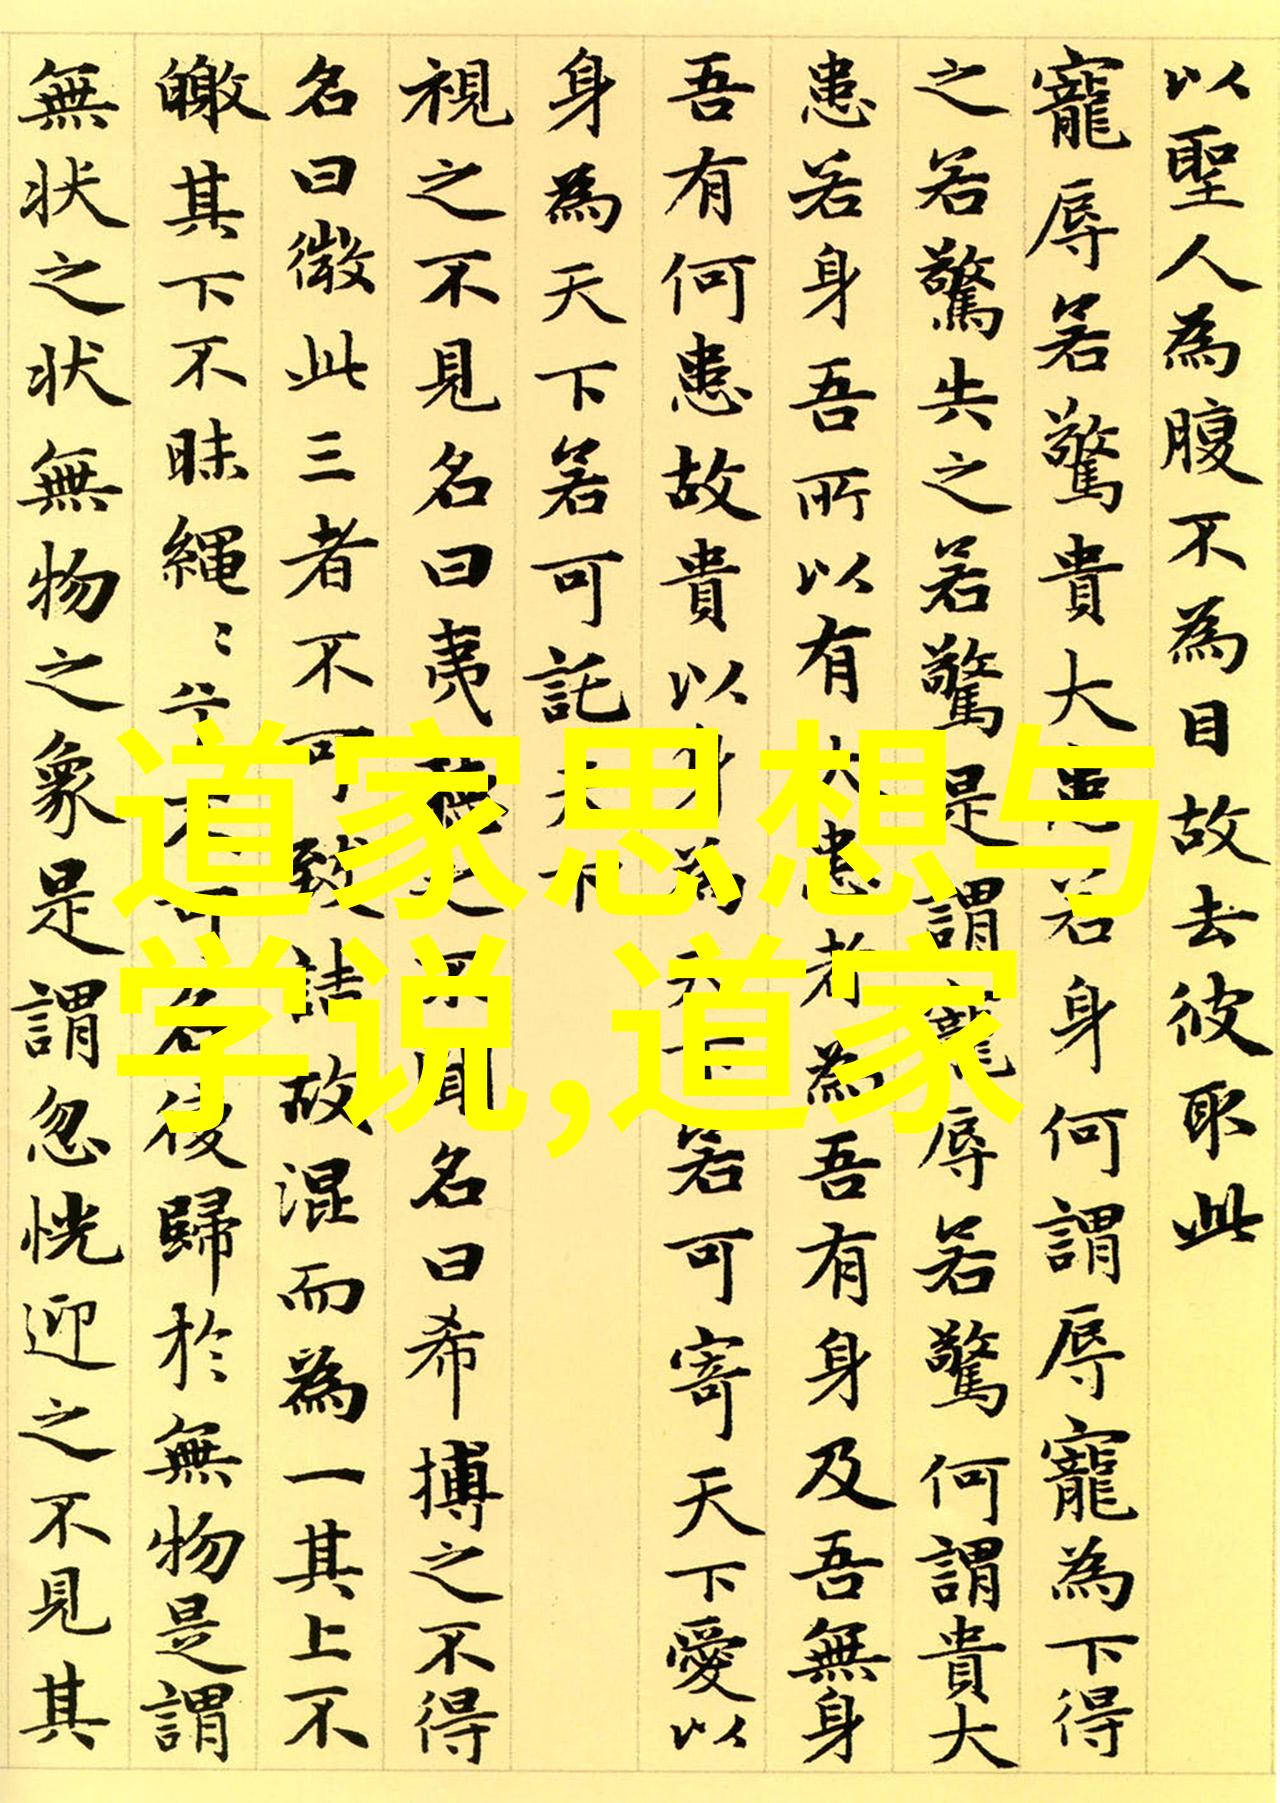 以聖人為腹不為目故去彼取此
寵辱若驚貴大患若身何謂辱寵為下得
之若驚失之若驚是謂寵辱若驚何謂貴大
患若身吾所以有大患者為吾有身及吾無身
吾有何患故貴以身為天下若可寄天下愛以
身為天下若可託天下
視之不見名曰夷聽之不聞名曰希搏之不得
名曰微此三者不可致詰故混而為一其上不
皦其下不昧繩〻兮不可名復歸於無物是謂
無状之状無物之象是謂忽恍迎之不見其
道家思想与
学说,道家